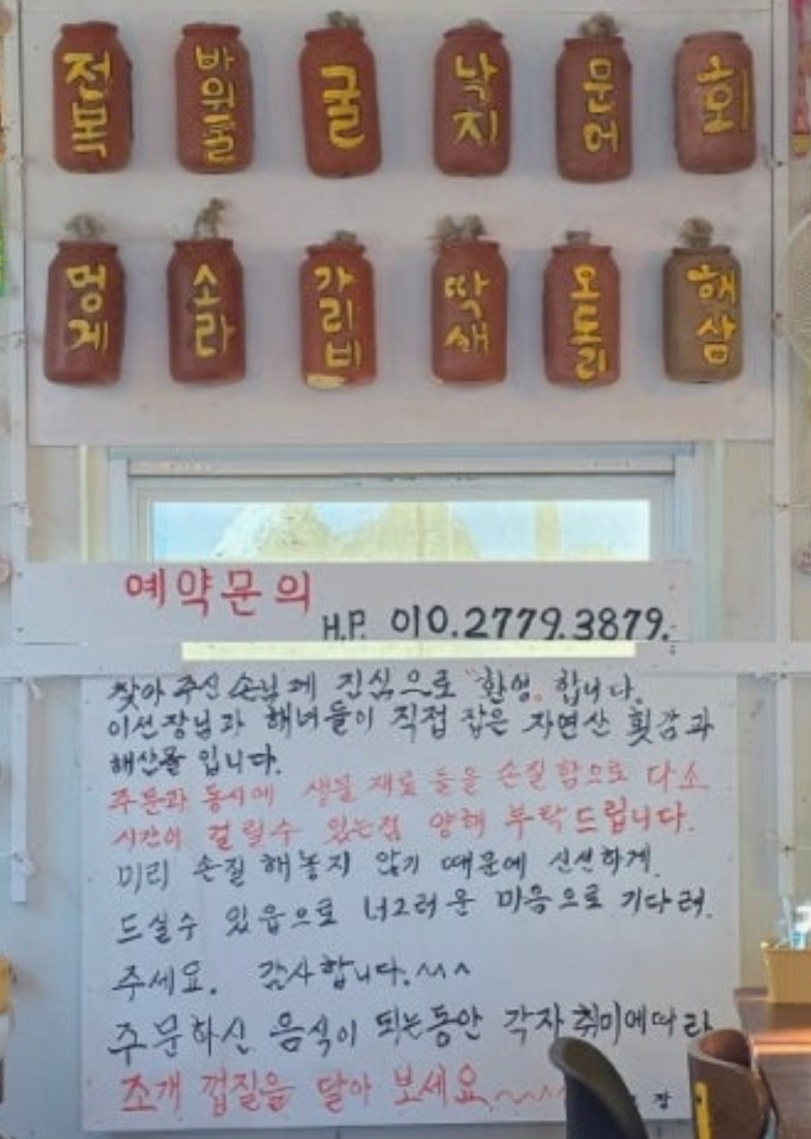 전복 바위굴 굴 낙지 문어 회
멍게 소라 가리비 딱새 오도리 해삼
예약문의
H.P. 010.2779.3879.
찾아 주신 손님께 진심으로 "환영" 합니다.
이선장님과 해녀들이 직접 잡은 자연산 횟감과
해산물 입니다.
주문과 동시에 생물 재료 들을 손질함으로 다소
시간이 걸릴수 있는점 양해 부탁드립니다.
미리 손질 해놓지 않기 때문에 신선하게.
드실수 있음으로 너그러운 마음으로 기다려.
주세요. 감사합니다.^^^
주문하신 음식이 되는동안 각자 취미에따라
조개 껍질을 달아 보세요.~~^^
장